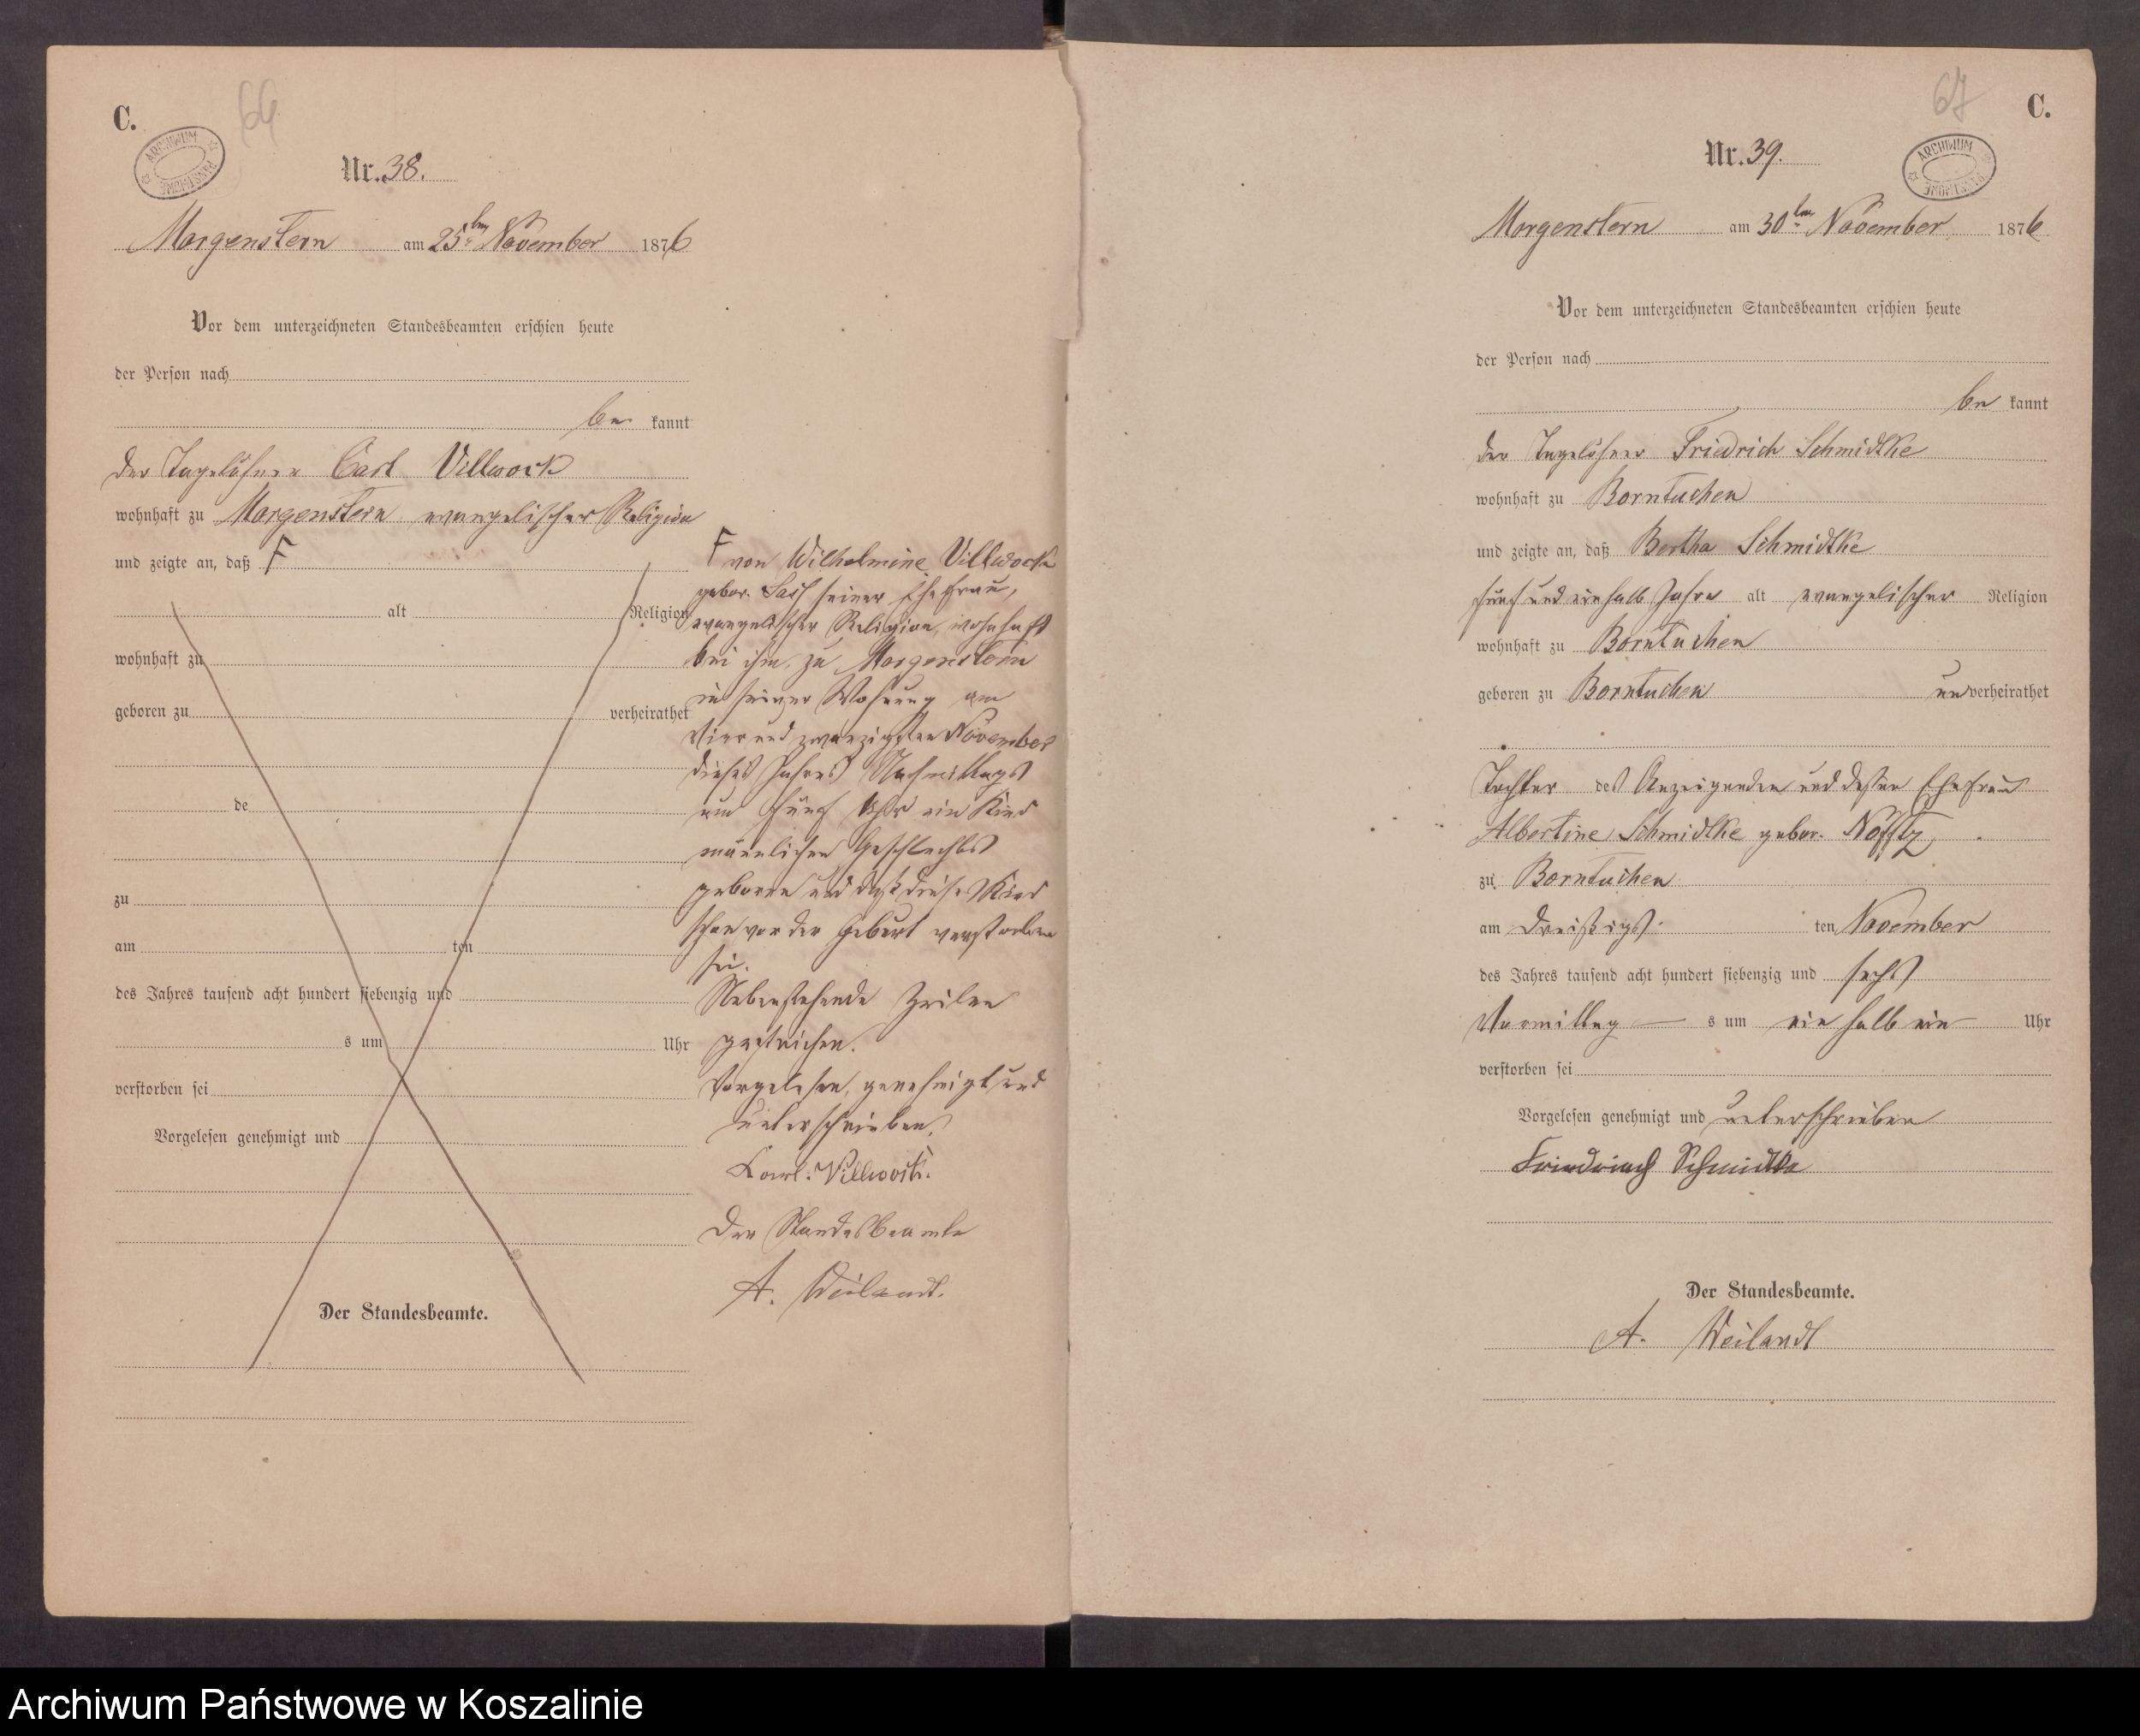 C.
66
ARCHIWUM PAŃSTWOWE
Nr. 38.
Morgenstern am 25ten November 1876
Vor dem unterzeichneten Standesbeamten erschien heute
der Person nach
be kannt
der Tagelöhner Carl Villwock
wohnhaft zu Morgenstern evangelischer Religion
und zeigte an, daß F
alt Religion
wohnhaft zu
geboren zu verheirathet
de
zu
am ten
des Jahres tausend acht hundert siebenzig und
s um Uhr
verstorben sei
Vorgelesen genehmigt und
Der Standesbeamte.
F von Wilhelmine Villwock
gebor. seiner Ehefrau,
evangelischer Religion, wohnhaft
bei ihm, zu Morgenstern
in seiner Wohnung am
vier und zwanzigsten November
dieses Jahres Nachmittags
um fünf Uhr ein Kind
männlichen Geschlechts
geboren und daß dieses Kind
schon vor der Geburt verstorben
sei.
Nebenstehende Zeilen
gestrichen.
Vorgelesen, genehmigt und
unterschrieben.
Karl Villwock.
Der Standesbeamte
A. Weilandt.
67
C.
ARCHIWUM PAŃSTWOWE
Nr. 39.
Morgenstern am 30ten November 1876
Vor dem unterzeichneten Standesbeamten erschien heute
der Person nach
be kannt
der Tagelöhner Friedrich Schmidtke
wohnhaft zu Borntuchen
und zeigte an, daß Bertha Schmidtke
fünf und einhalb Jahre alt evangelischer Religion
wohnhaft zu Borntuchen
geboren zu Borntuchen unverheirathet
Tochter des Anzeigenden und dessen Ehefrau
Albertine Schmidtke gebor.
zu Borntuchen
am dreißigs ten November
des Jahres tausend acht hundert siebenzig und sechs
Vormittag s um ein halb ein Uhr
verstorben sei
Vorgelesen genehmigt und unterschrieben
Friedrich Schmidtke
Der Standesbeamte.
A. Weilandt
Archiwum Państwowe w Koszalinie